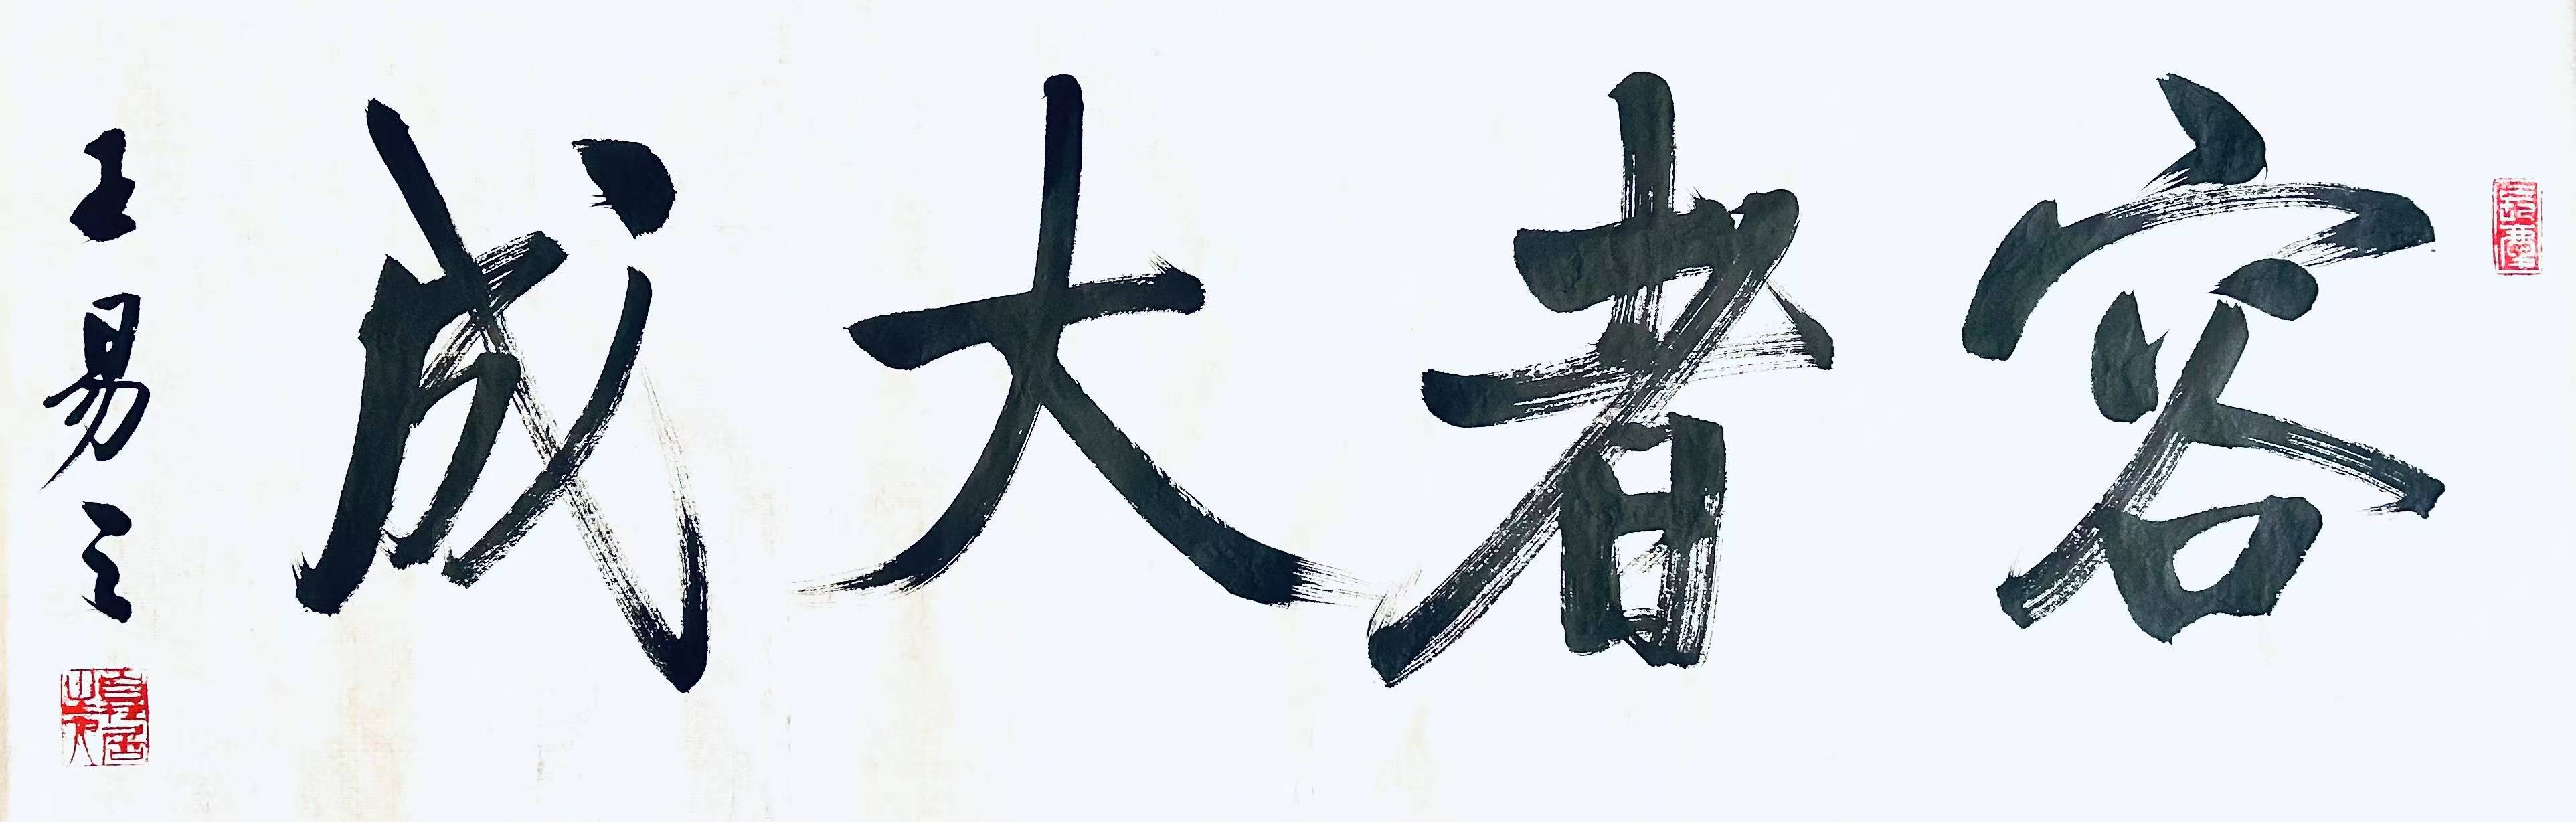 容者大成
王易之